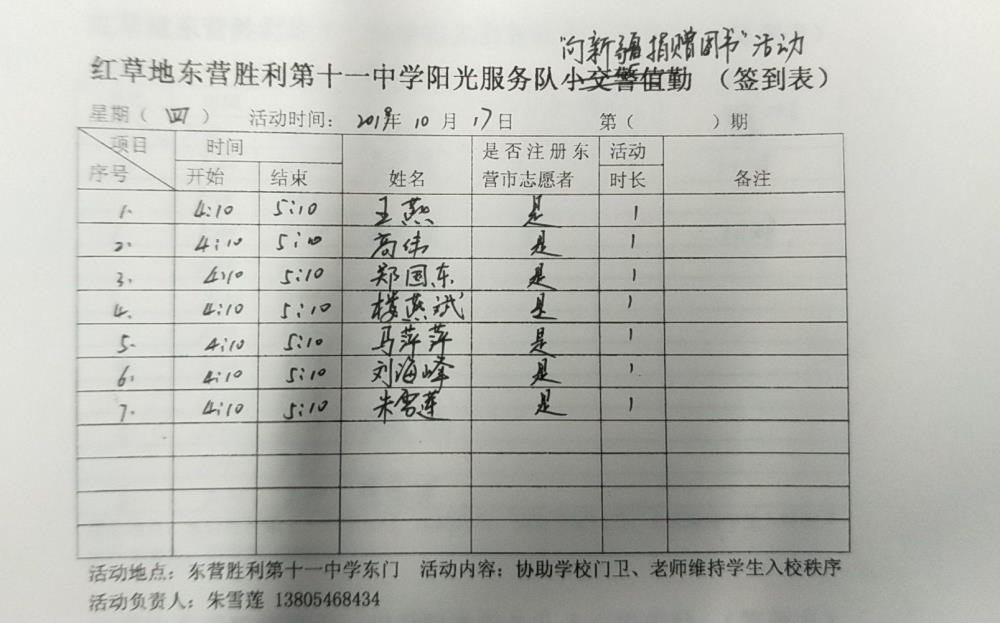 "向新疆捐赠图书"活动
红草地东营胜利第十一中学阳光服务队小交警值勤 (签到表)
星期( 四 ) 活动时间: 2019年 10 月 17日 第( )期
项目 时间 是否注册东 活动
序号 开始 结束 姓名 营市志愿者 时长 备注
1. 4:10 5:10 王燕 是 1
2. 4:10 5:10 高伟 是 1
3. 4:10 5:10 郑国东 是 1
4. 4:10 5:10 楼燕斌 是 1
5. 4:10 5:10 马萍萍 是 1
6. 4:10 5:10 刘海峰 是 1
7. 4:10 5:10 朱雪莲 是 1
活动地点: 东营胜利第十一中学东门 活动内容: 协助学校门卫、老师维持学生入校秩序
活动负责人: 朱雪莲 13805468434